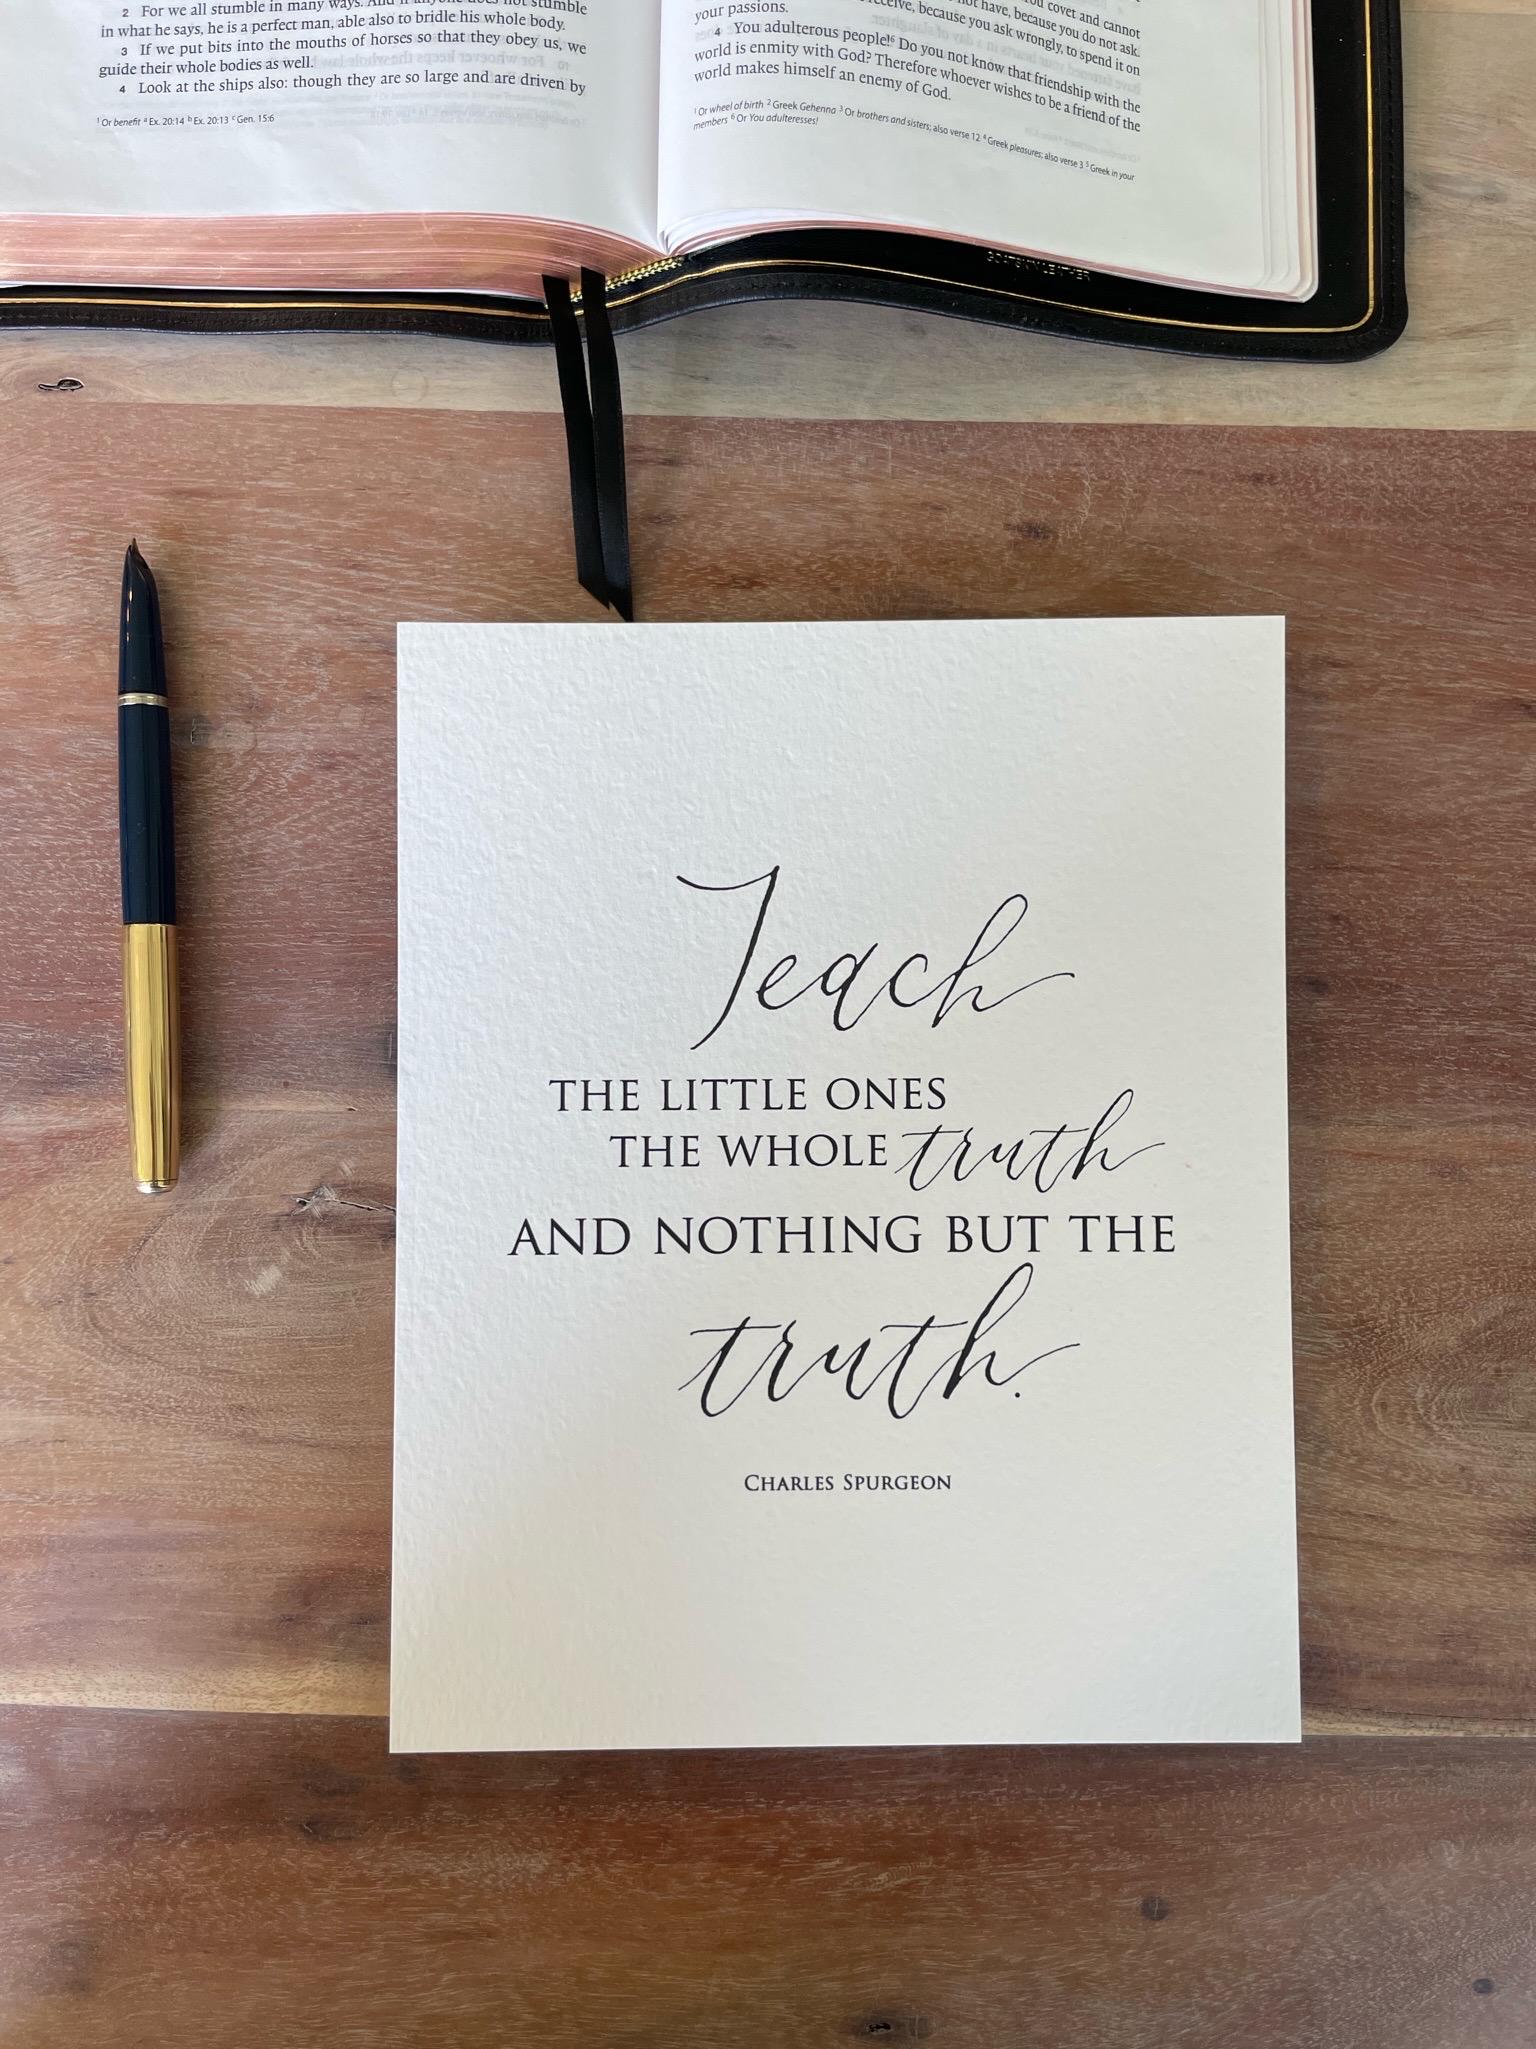 2 For we all stumble in many ways. And if anyone does not stumble
in what he says, he is a perfect man, able also to bridle his whole body.
3 If we put bits into the mouths of horses so that they obey us, we
guide their whole bodies as well.
4 Look at the ships also: though they are so large and are driven by
1 Or benefit a Ex. 20:14 b Ex. 20:13 c Gen. 15:6
covet and cannot
not have, because you do not ask.
receive, because you ask wrongly, to spend it on
your passions.
4 You adulterous people!6 Do you not know that friendship with the
world is enmity with God? Therefore whoever wishes to be a friend of the
world makes himself an enemy of God.
1 Or wheel of birth 2 Greek Gehenna 3 Or brothers and sisters; also verse 12 4 Greek pleasures; also verse 3 5 Greek in your
members 6 Or You adulteresses!
GOATSKIN LEATHER
Teach
THE LITTLE ONES
THE WHOLE truth
AND NOTHING BUT THE
truth.
CHARLES SPURGEON